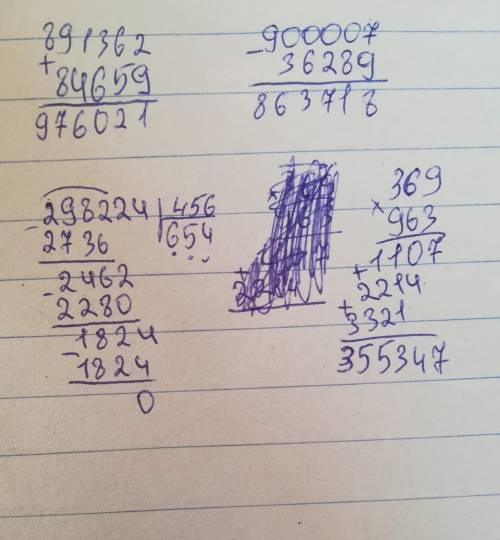 891362
+
84659
976021
- 900007
36289
863718
- 298224 | 456
2736 654
- 2462
2280
- 1824
1824
0
369
×
963
1107
+
2214
+
3321
355347